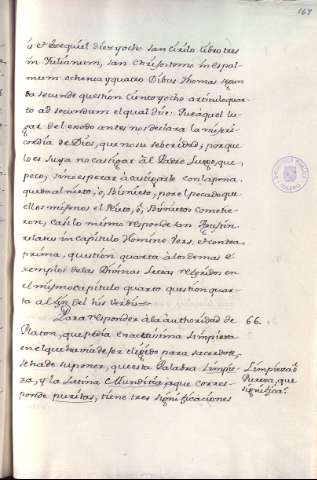 169
is et Ezequiel diez y ocho san Cirilo libro tres
in Julianum, san Chrisostomo in espal-
mum ochenta y quatro Dibus Thomas segun
da secunde question ciento y ocho articulo quar
to ad secundum el qual dice: Que aquel lu-
gar del exodo antes nos declara la miseri-
cordia de Dios, que no su seberidad, porque
lo es suya no castigar al Padre Luego, que
peco, sino esperar a castigarle con la pena
quebo al nieto, o, Bisnieto, por el pecado que
ellos mismos el Nieto, o, Bisnietos cometie-
ron, casi lo mismo responde san Agustin
relatus in capitulo Homine Vers. et contra
prima, question quarta à los demas e-
xemplos de las Divinas Letras referidos en
el mismo capitulo quarto question quar-
ta al fin del his verdis
Para responder à la authoridad de
66.
Platon, que pedia en actissima Limpieza
en el que havia de ser elegido para sacerdote,
se ha de suponer, que esta Palabra Limpie-
za, y la Latina Munditia, a que corres-
ponde puritas, tiene tres significaciones
Limpieza o
Pureza, que
significa.
TOLEDO